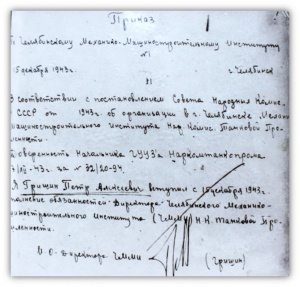 Приказ
По Челябинскому Механико-Машиностроительному Институту
№1
15 декабря 1943г. г. Челябинск
§1
В соответствии с постановлением Совета Народных Комис.
СССР от 1943г. об организации в г. Челябинске Механико-
машиностроительного Института Нар. Комис. Танковой Про-
мышленности.
доверенность Начальника ГУУЗ'а Наркоманкопрома
43г. за № 32/20-94.
Я Гришин Петр Алексеевич вступил с 15 декабря 1943г.
обязанностей-директора-Челябинского Механико-
машиностроительного Института (ЧММИ) Н.К. Танковой Про-
мышленности.
И. О. Директора ЧММИ (Гришин)